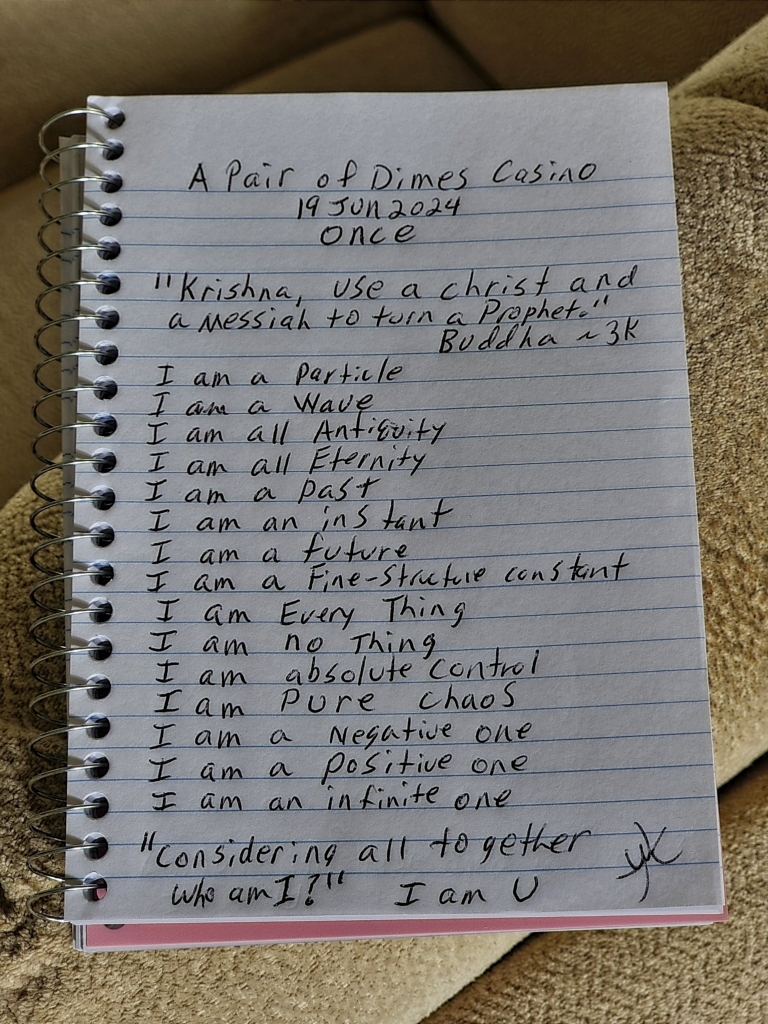 A Pair of Dimes Casino
19 JUN 2024
once
"Krishna, use a christ and
a Messiah to turn a Prophet."
Buddha ~3K
I am a Particle
I am a Wave
I am all Antiquity
I am all Eternity
I am a past
I am an instant
I am a future
I am a Fine-Structure constant
I am Every Thing
I am no Thing
I am absolute control
I am Pure Chaos
I am a Negative one
I am a positive one
I am an infinite one
"Considering all together
who am I?" I am U